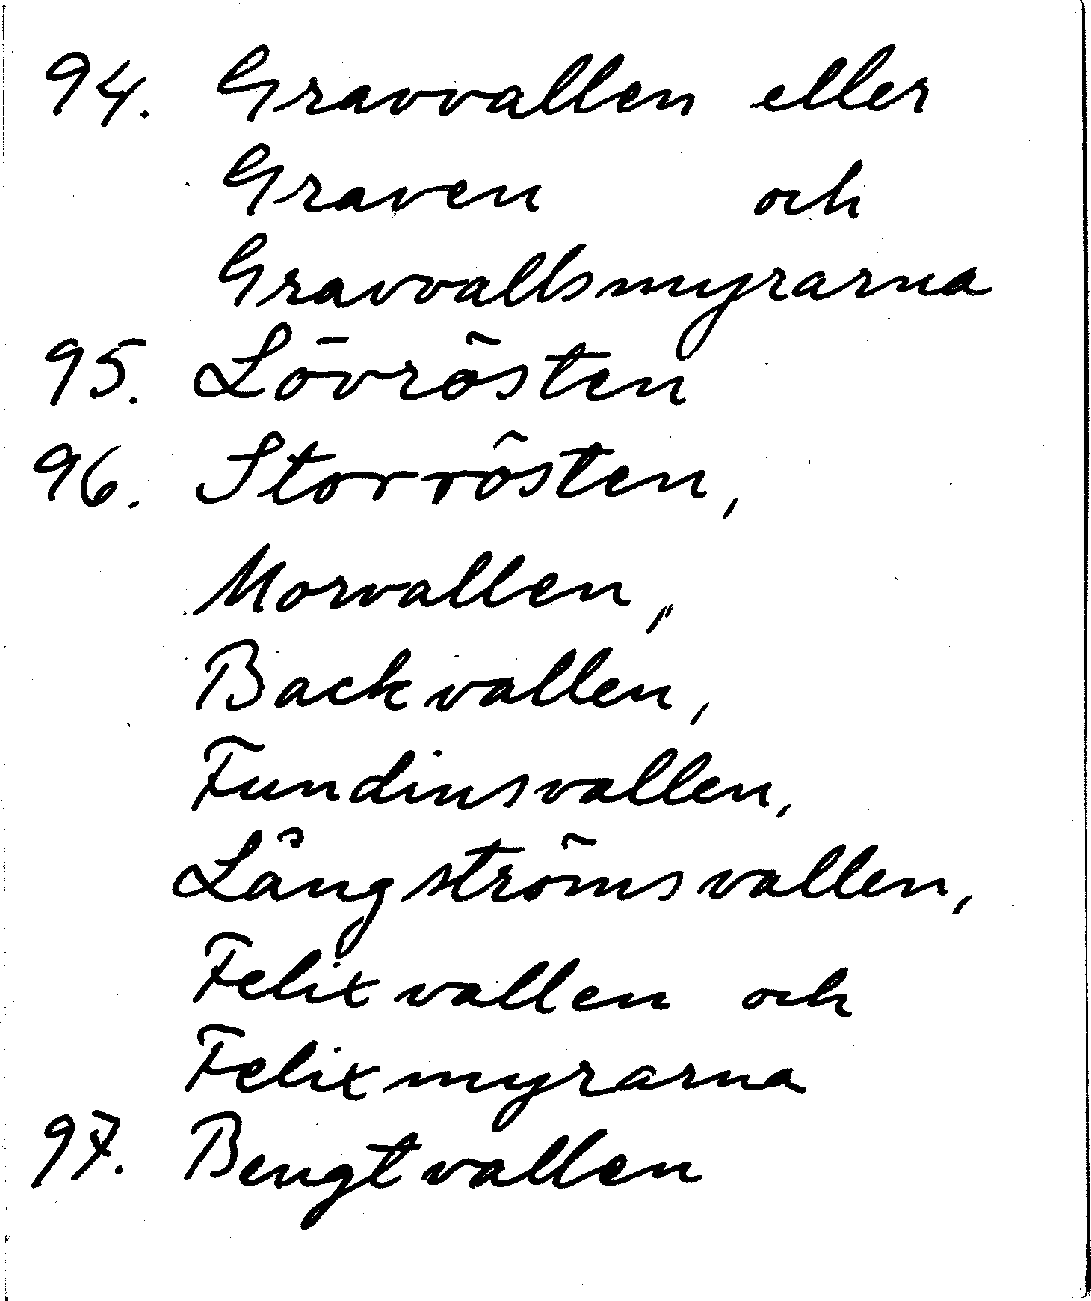 94. Gravvallen eller
Graven och
Gravvallsmyrarna
95. Lövrösten
96. Storrösten,
Morvallen,
Backvallen,
Fundinsvallen,
Långströmsvallen,
Felixvallen och
Felixmyrarna
97. Bengtvallen